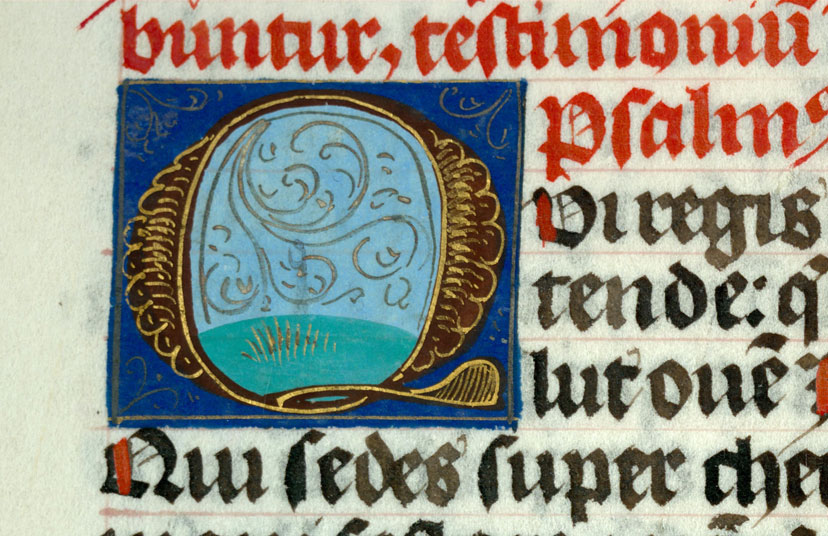 buntur, testimoniū
Psalmus
QUi regis
tende: q̄
lut ouē
Qui sedes super che